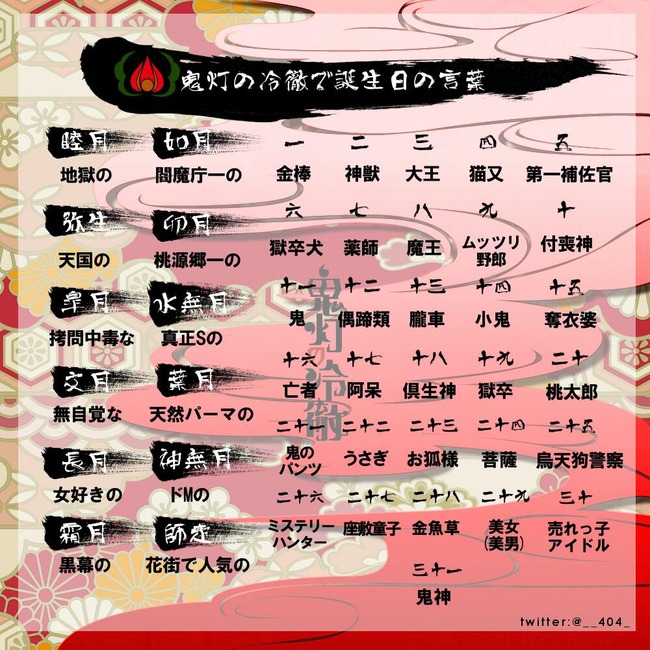 鬼灯の冷徹で誕生日の言葉
睦月 如月 一 二 三 四 五
地獄の 閻魔庁一の 金棒 神獣 大王 猫又 第一補佐官
弥生 卯月 六 七 八 九 十
天国の 桃源郷一の 獄卒犬 薬師 魔王 ムッツリ野郎 付喪神
皐月 水無月 十一 十二 十三 十四 十五
拷問中毒な 真正Sの 鬼 偶蹄類 朧車 小鬼 奪衣婆
文月 葉月 十六 十七 十八 十九 二十
無自覚な 天然パーマの 亡者 阿呆 倶生神 獄卒 桃太郎
長月 神無月 二十一 二十二 二十三 二十四 二十五
女好きの ドMの 鬼のパンツ うさぎ お狐様 菩薩 烏天狗警察
霜月 師走 二十六 二十七 二十八 二十九 三十
黒幕の 花街で人気の ミステリーハンター 座敷童子 金魚草 美女(美男) 売れっ子アイドル
三十一
鬼神
鬼灯の冷徹
twitter:@__404_